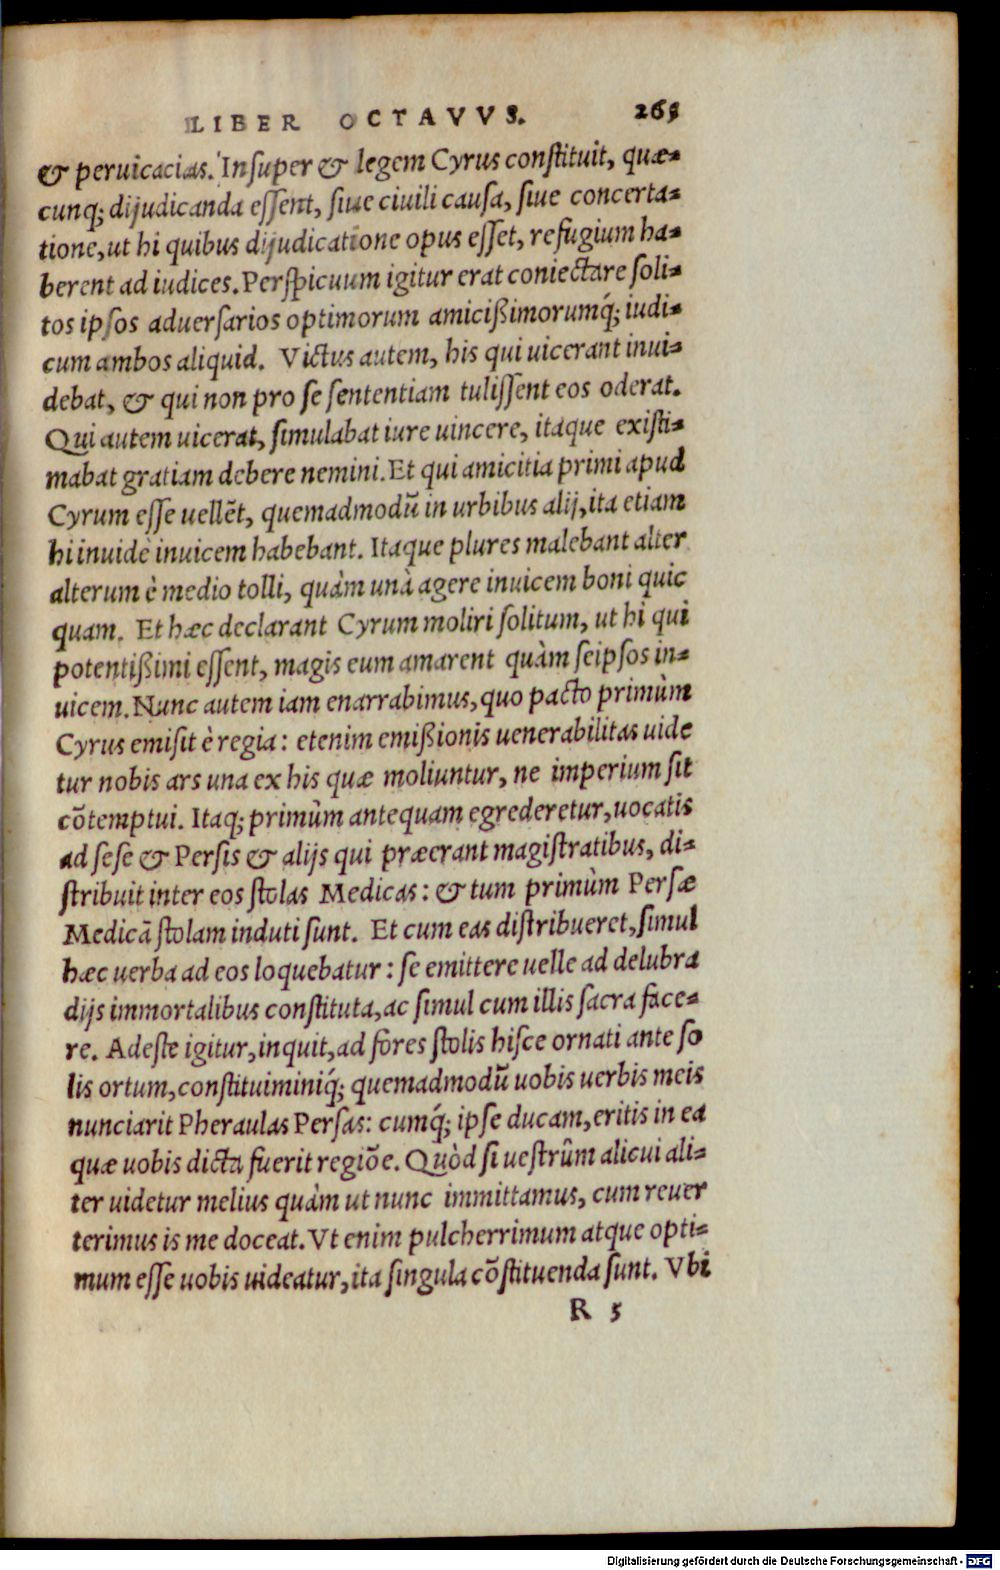 LIBER OCTAVVS. 265
& peruicacias. Insuper & legem Cyrus constituit, quæ-
cunq; dijudicanda essent, siue ciuili causa, siue concerta-
tione, ut hi quibus dijudicatione opus esset, refugium ha-
berent ad iudices. Perspicuum igitur erat coniectare soli-
tos ipsos aduersarios optimorum amicißimorumq́; iudi-
cum ambos aliquid. Victus autem, his qui uicerant inui-
debat, & qui non pro se sententiam tulissent eos oderat.
Qui autem uicerat, simulabat iure uincere, itaque existi-
mabat gratiam debere nemini. Et qui amicitia primi apud
Cyrum esse uellẽt, quemadmodũ in urbibus alij, ita etiam
hi inuidè inuicem habebant. Itaque plures malebant alter
alterum è medio tolli, quàm unà agere inuicem boni quic
quam. Et hæc declarant Cyrum moliri solitum, ut hi qui
potentißimi essent, magis eum amarent quàm seipsos in-
uicem. Nunc autem iam enarrabimus, quo pacto primùm
Cyrus emisit è regia: etenim emißionis uenerabilitas uide
tur nobis ars una ex his quæ moliuntur, ne imperium sit
cõtemptui. Itaq; primùm antequam egrederetur, uocatis
ad sese & Persis & alijs qui præerant magistratibus, di-
stribuit inter eos stolas Medicas: & tum primùm Persæ
Medicã stolam induti sunt. Et cum eas distribueret, simul
hæc uerba ad eos loquebatur: se emittere uelle ad delubra
dijs immortalibus constituta, ac simul cum illis sacra face-
re. Adeste igitur, inquit, ad fores stolis hisce ornati ante so
lis ortum, constituiminiq́; quemadmodũ uobis uerbis meis
nunciarit Pheraulas Persas: cumq́; ipse ducam, eritis in ea
quæ uobis dicta fuerit regiõe. Quòd si uestrûm alicui ali-
ter uidetur melius quàm ut nunc immittamus, cum reuer
terimus is me doceat. Vt enim pulcherrimum atque opti-
mum esse uobis uideatur, ita singula cõstituenda sunt. Vbi
R 5
Digitalisierung gefördert durch die Deutsche Forschungsgemeinschaft - DFG